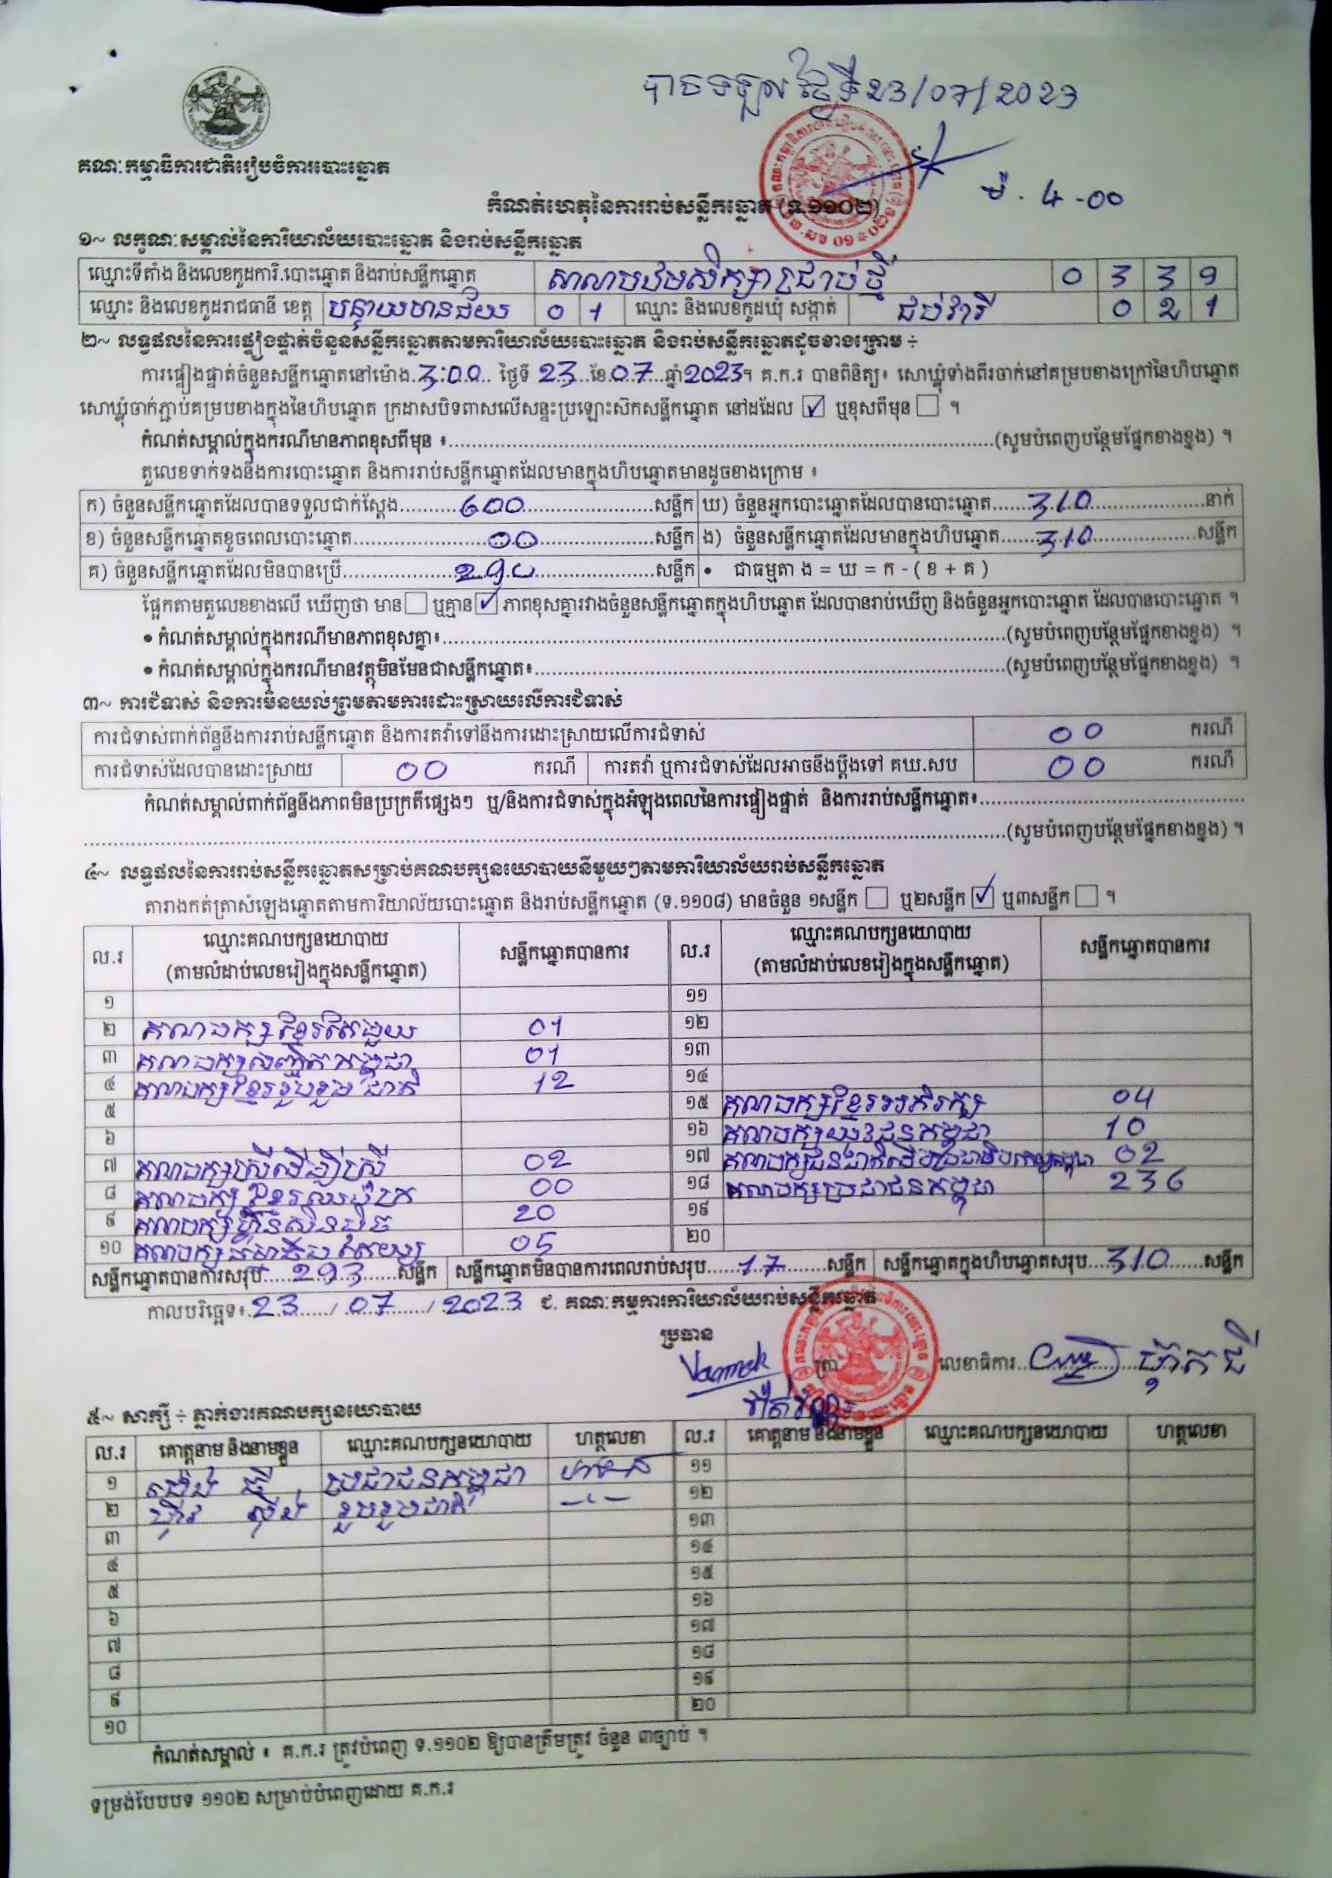 បានទទួល ថ្ងៃទី 23/07/2023
ម៉ . 4 -00
គណៈកម្មាធិការជាតិរៀបចំការបោះឆ្នោត
កំណត់ហេតុនៃការរាប់សន្លឹកឆ្នោត (ទ.១១០២)
១~ លក្ខណៈសម្គាល់នៃការិយាល័យបោះឆ្នោត និងរាប់សន្លឹកឆ្នោត
ឈ្មោះទីតាំង និងលេខកូដការិ.បោះឆ្នោត និងរាប់សន្លឹកឆ្នោត សាលាបឋមសិក្សា ជ្រាប់ថ្មី 0 3 3 9
ឈ្មោះ និងលេខកូដរាជធានី ខេត្ត បន្ទាយមានជ័យ 0 1 ឈ្មោះ និងលេខកូដឃុំ សង្កាត់ ជប់វារី 0 2 1
២~ លទ្ធផលនៃការផ្ទៀងផ្ទាត់ចំនួនសន្លឹកឆ្នោតតាមការិយាល័យបោះឆ្នោត និងរាប់សន្លឹកឆ្នោតដូចខាងក្រោម ÷
ការផ្ទៀងផ្ទាត់ចំនួនសន្លឹកឆ្នោតនៅម៉ោង.3:00.. ថ្ងៃទី 23...ខែ.07...ឆ្នាំ2023។ គ.ក.រ បានពិនិត្យ៖ សោឃ្លុំទាំងពីរចាក់នៅគម្របខាងក្រៅនៃហិបឆ្នោត
សោឃ្លុំចាក់ភ្ជាប់គម្របខាងក្នុងនៃហិបឆ្នោត ក្រដាសបិទពាសលើសន្ទះប្រឡោះស៊កសន្លឹកឆ្នោត នៅដដែល ☑ ឬខុសពីមុន ☐ ។
កំណត់សម្គាល់ក្នុងករណីមានភាពខុសពីមុន ៖......(សូមបំពេញបន្ថែមផ្នែកខាងខ្នង) ។
តួលេខទាក់ទងនឹងការបោះឆ្នោត និងការរាប់សន្លឹកឆ្នោតដែលមានក្នុងហិបឆ្នោតមានដូចខាងក្រោម ៖
ក) ចំនួនសន្លឹកឆ្នោតដែលបានទទួលជាក់ស្តែង......600......សន្លឹក ឃ) ចំនួនអ្នកបោះឆ្នោតដែលបានបោះឆ្នោត......310......នាក់
ខ) ចំនួនសន្លឹកឆ្នោតខូចពេលបោះឆ្នោត......00......សន្លឹក ង) ចំនួនសន្លឹកឆ្នោតដែលមានក្នុងហិបឆ្នោត......310......សន្លឹក
គ) ចំនួនសន្លឹកឆ្នោតដែលមិនបានប្រើ......290......សន្លឹក • ជាធម្មតា ង = ឃ = ក - ( ខ + គ )
ផ្អែកតាមតួលេខខាងលើ ឃើញថា មាន ☐ ឬគ្មាន ☑ ភាពខុសគ្នារវាងចំនួនសន្លឹកឆ្នោតក្នុងហិបឆ្នោត ដែលបានរាប់ឃើញ និងចំនួនអ្នកបោះឆ្នោត ដែលបានបោះឆ្នោត ។
• កំណត់សម្គាល់ក្នុងករណីមានភាពខុសគ្នា៖......(សូមបំពេញបន្ថែមផ្នែកខាងខ្នង) ។
• កំណត់សម្គាល់ក្នុងករណីមានវត្ថុមិនមែនជាសន្លឹកឆ្នោត៖......(សូមបំពេញបន្ថែមផ្នែកខាងខ្នង) ។
៣~ ការជំទាស់ និងការមិនយល់ព្រមតាមការដោះស្រាយលើការជំទាស់
ការជំទាស់ពាក់ព័ន្ធនឹងការរាប់សន្លឹកឆ្នោត និងការតវ៉ាទៅនឹងការដោះស្រាយលើការជំទាស់ 00 ករណី
ការជំទាស់ដែលបានដោះស្រាយ 00 ករណី ការតវ៉ា ឬការជំទាស់ដែលអាចនឹងប្តឹងទៅ គឃ.សប 00 ករណី
កំណត់សម្គាល់ពាក់ព័ន្ធនឹងភាពមិនប្រក្រតីផ្សេងៗ ឬ/និងការជំទាស់ក្នុងអំឡុងពេលនៃការផ្ទៀងផ្ទាត់ និងការរាប់សន្លឹកឆ្នោត៖......
......(សូមបំពេញបន្ថែមផ្នែកខាងខ្នង) ។
៤~ លទ្ធផលនៃការរាប់សន្លឹកឆ្នោតសម្រាប់គណបក្សនយោបាយនីមួយៗតាមការិយាល័យរាប់សន្លឹកឆ្នោត
តារាងកត់ត្រាសំឡេងឆ្នោតតាមការិយាល័យបោះឆ្នោត និងរាប់សន្លឹកឆ្នោត (ទ.១១០៨) មានចំនួន ១សន្លឹក ☐ ឬ២សន្លឹក ☑ ឬ៣សន្លឹក ☐ ។
ល.រ ឈ្មោះគណបក្សនយោបាយ (តាមលំដាប់លេខរៀងក្នុងសន្លឹកឆ្នោត) សន្លឹកឆ្នោតបានការ ល.រ ឈ្មោះគណបក្សនយោបាយ (តាមលំដាប់លេខរៀងក្នុងសន្លឹកឆ្នោត) សន្លឹកឆ្នោតបានការ
១ ១១
២ គណបក្សខ្មែរតែមួយ 01 ១២
៣ គណបក្សសញ្ជាតិកម្ពុជា 01 ១៣
៤ គណបក្សខ្មែររួបរួមជាតិ 12 ១៤
៥ ១៥ គណបក្សខ្មែរអភិរក្ស 04
៦ ១៦ គណបក្សយុវជនកម្ពុជា 10
៧ គណបក្សស្រីដើម្បីស្រី 02 ១៧ គណបក្សជនជាតិដើមប្រជាធិបតេយ្យកម្ពុជា 02
៨ គណបក្ស 00 ១៨ គណបក្សប្រជាជនកម្ពុជា 236
៩ គណបក្សហ្វ៊ុនស៊ិនប៉ិច 20 ១៩
១០ គណបក្សធម្មាធិបតេយ្យ 05 ២០
សន្លឹកឆ្នោតបានការសរុប......293......សន្លឹក សន្លឹកឆ្នោតមិនបានការពេលរាប់សរុប......17......សន្លឹក សន្លឹកឆ្នោតក្នុងហិបឆ្នោតសរុប...310......សន្លឹក
កាលបរិច្ឆេទ៖.23...../.07....../.2023 ជ. គណៈកម្មការការិយាល័យរាប់សន្លឹកឆ្នោត
ប្រធាន
ត្រា លេខាធិការ......
៥~ សាក្សី ÷ ភ្នាក់ងារគណបក្សនយោបាយ
ល.រ គោត្តនាម និងនាមខ្លួន ឈ្មោះគណបក្សនយោបាយ ហត្ថលេខា ល.រ គោត្តនាម និងនាមខ្លួន ឈ្មោះគណបក្សនយោបាយ ហត្ថលេខា
១ ប្រជាជនកម្ពុជា ១១
២ រួបរួមជាតិ ១២
៣ ១៣
៤ ១៤
៥ ១៥
៦ ១៦
៧ ១៧
៨ ១៨
៩ ១៩
១០ ២០
កំណត់សម្គាល់ ៖ គ.ក.រ ត្រូវបំពេញ ទ.១១០២ ឱ្យបានត្រឹមត្រូវ ចំនួន ៣ច្បាប់ ។
ទម្រង់បែបបទ ១១០២ សម្រាប់បំពេញដោយ គ.ក.រ